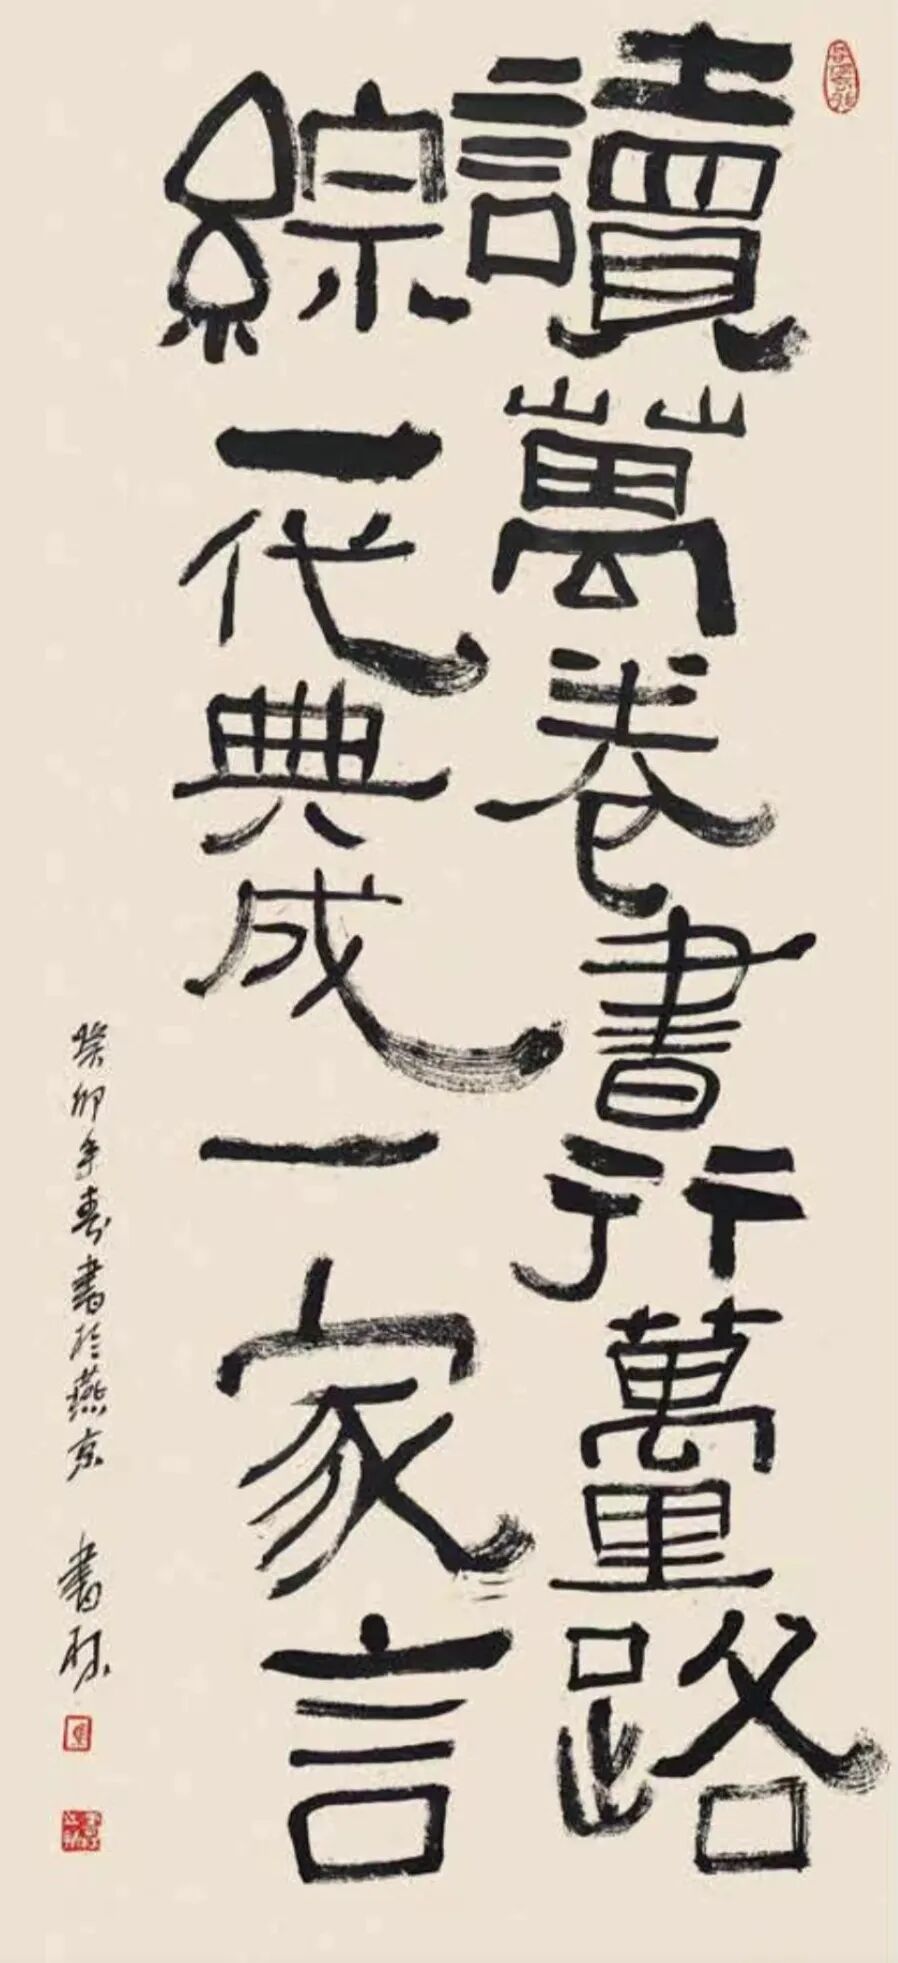 讀萬卷書行萬里路
綜一代典成一家言
癸卯年春書於燕京 書林